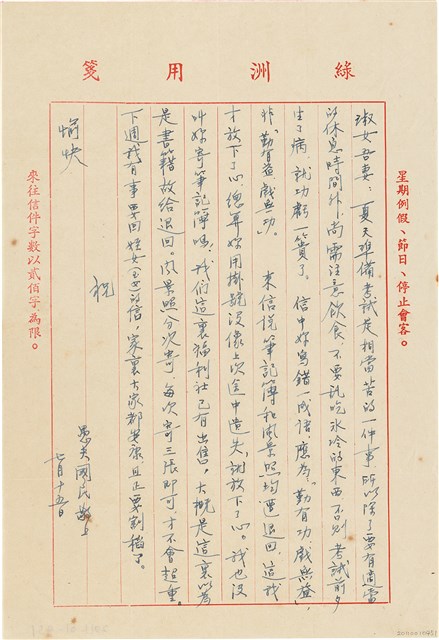 綠洲用箋
星期例假、節日、停止會客。
淑女吾妻：夏天準備考試是相當苦的一件事，所以除了要有適當
的休息時間外，尚需注意飲食，不要亂吃冰冷的東西，否則考試前夕
生了病，就功虧一簣了。 信中妳寫錯一成語，應為「勤有功，戲無益」，
非「勤有益戲無功」。 來信說筆記簿和風景照均遭退回，這我
才放下了心，總算妳用掛號沒像上次途中遺失，就放下了心。我也沒
叫妳寄筆記簿嗎，我們這裏福利社已有出售，大概是這裏以為
是書籍故給退回。風景照分次寄，每次寄三張即可，才不會超重。
下週我有事要回姪女的信，家裏大家都安康，且正要割稻了。
祝
愉快
愚夫國民敬上
七月十五日
來往信件字數以貳佰字為限。